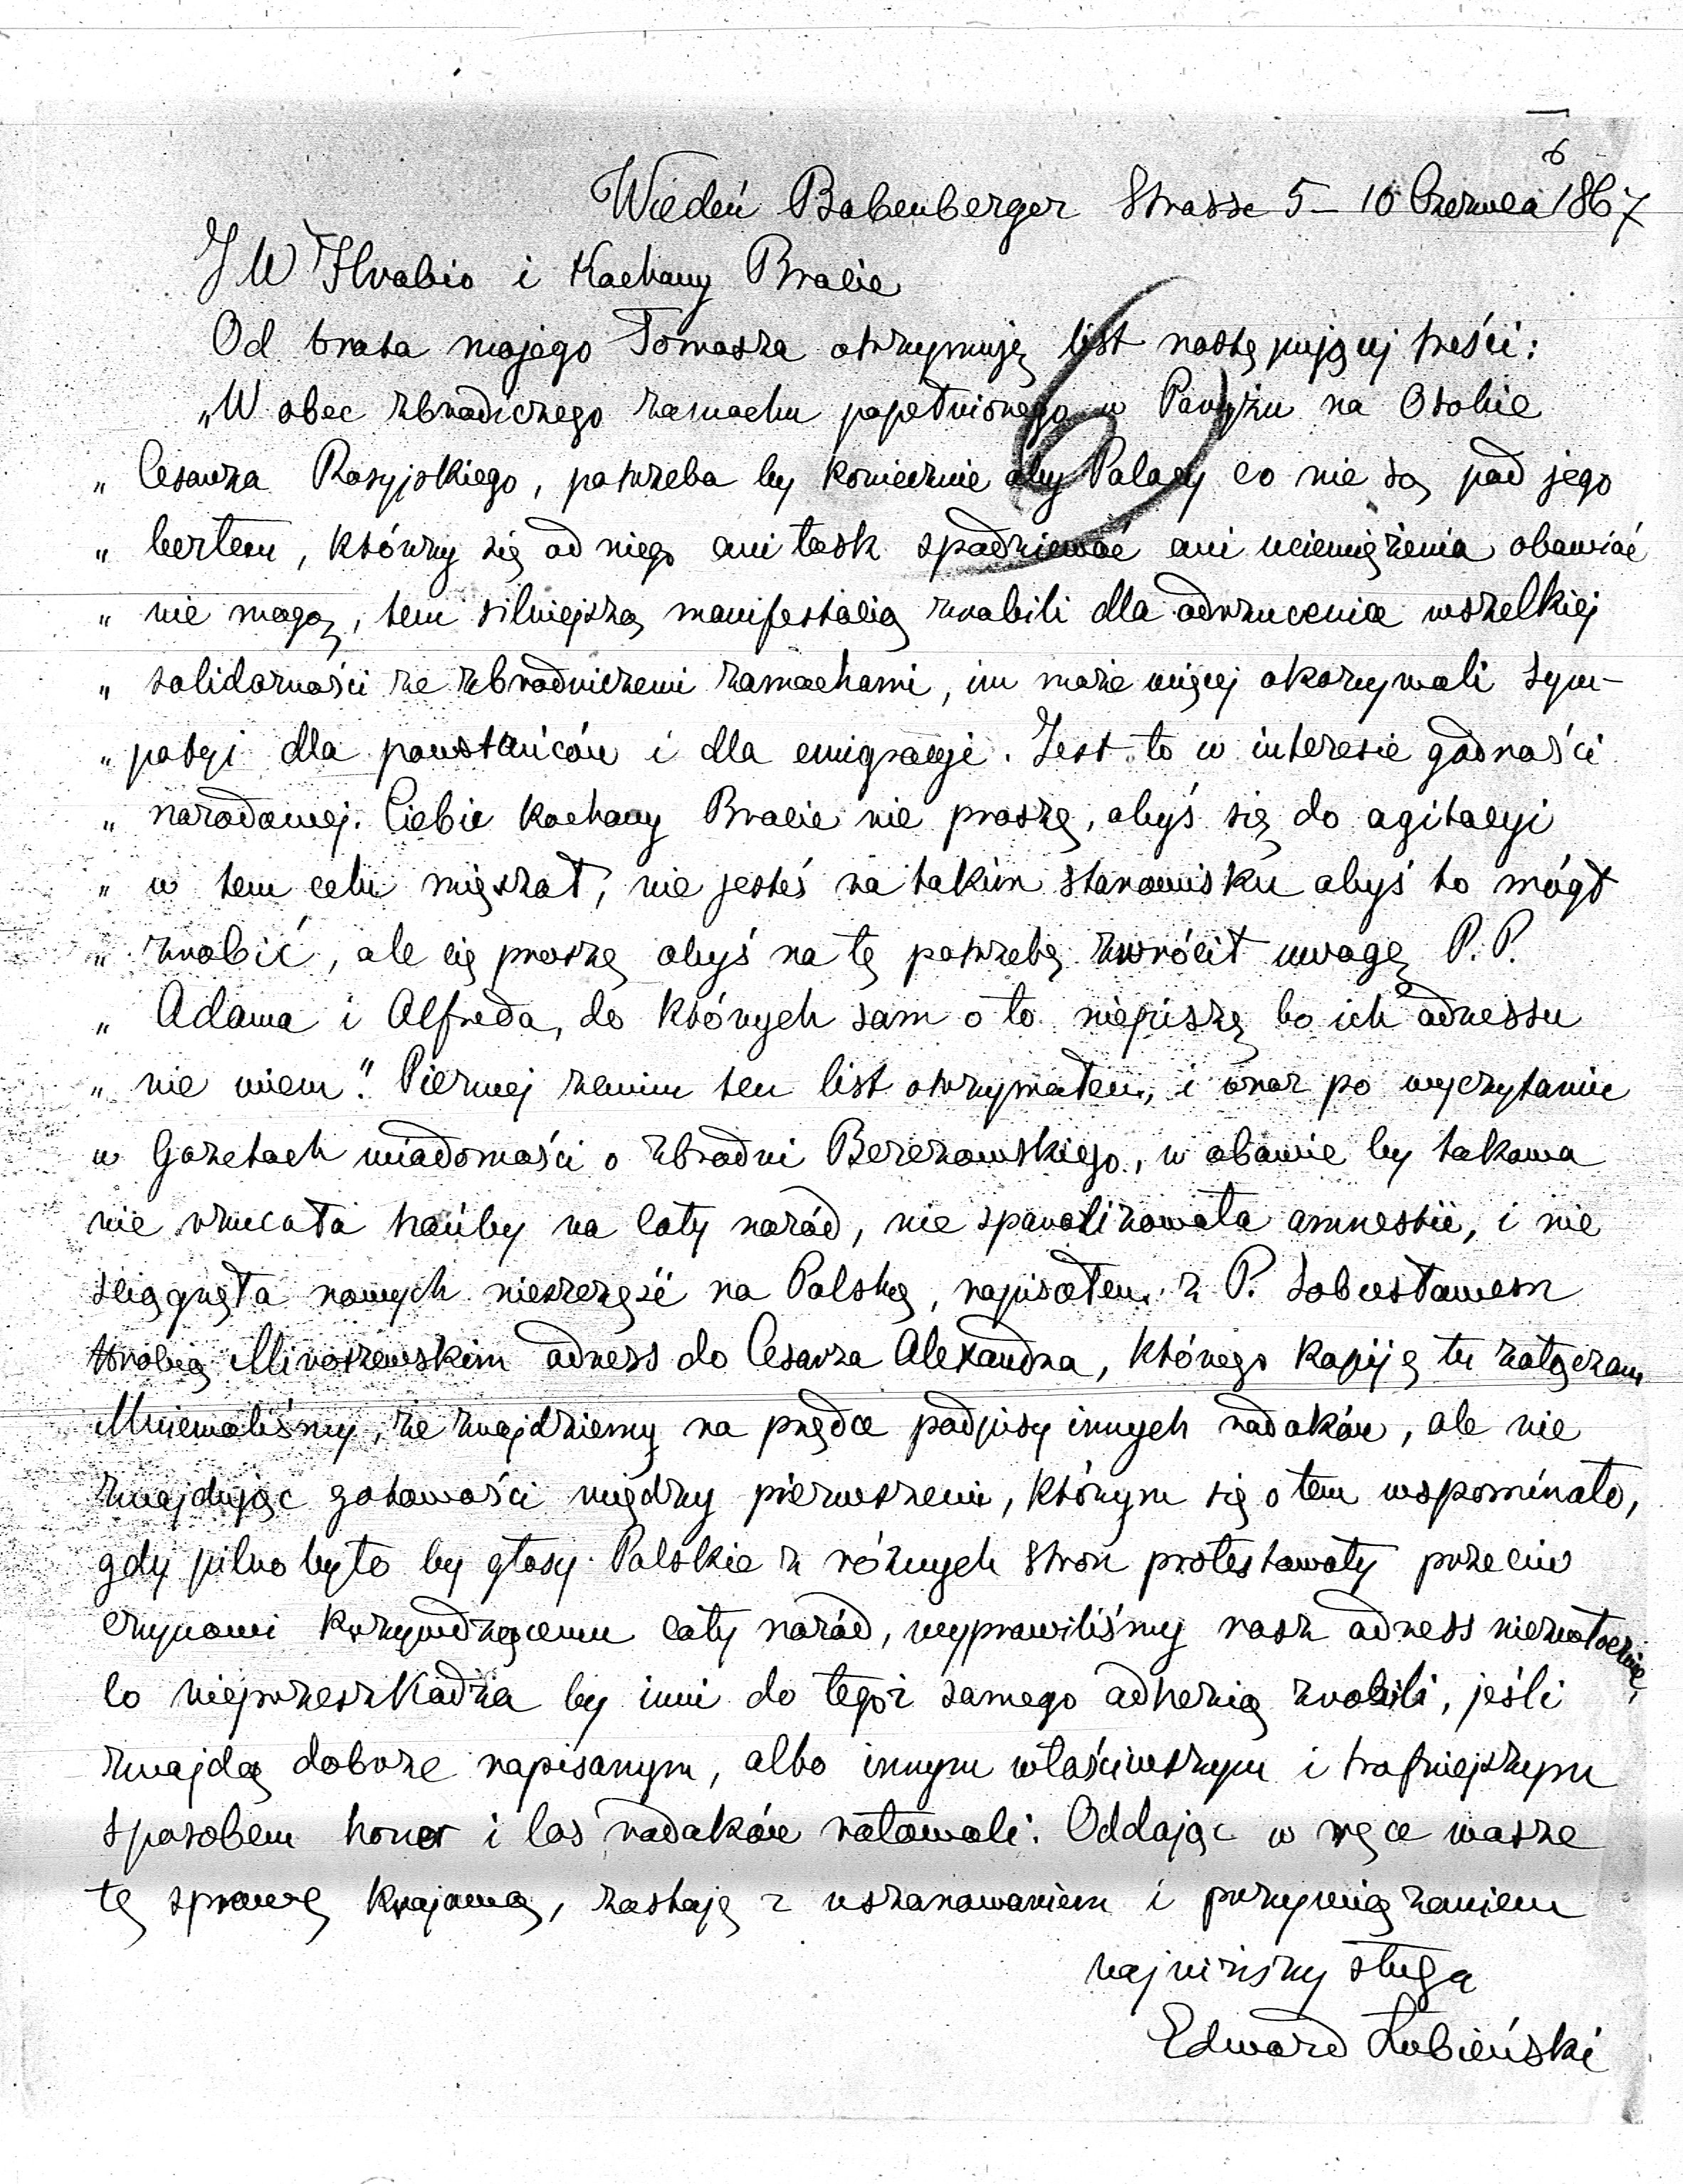 6
Wiedeń Babenberger Strasse 5 – 10 Czerwca 1867
JW Hrabio i Kochany Bracie
Od brata mojego Tomasza otrzymuję list następującej treści:
„W obec zbrodniczego zamachu popełnionego w Paryżu na Osobie
„ Cesarza Rosyjskiego, potrzeba by koniecznie aby Polacy co nie są pod jego
„ berłem, którzy się od niego ani łask spodziewać ani uciemiężenia obawiać
„ nie mogą, tem silniejszą manifestacią zrobili dla odrzucenia wszelkiej
„ solidarności ze zbrodniczemi zamachami, im może więcej okazywali sym-
„ patyi dla powstańców i dla emigracyi. Jest to w interesie godności
„ narodowej. Ciebie kochany Bracie nie proszę, abyś się do agitacyi
„ w tem celu mięszał, nie jesteś na takim stanowisku abyś to mógł
„ zrobić, ale cię proszę abyś na tę potrzebę zwrócił uwagę P.P.
„ Adama i Alfreda, do których sam o to niepiszę bo ich adressu
„ nie wiem." Pierwej zanim ten list otrzymałem, i zaraz po wyczytaniu
w Gazetach wiadomości o zbrodni Berezowskiego, w obawie by takowa
nie rzucała hańby na cały naród, nie sparaliżowała amnestii, i nie
ściągnęła nowych nieszczęść na Polskę, napisałem z P. Sobiesławem
Hrabią Mieroszewskim adress do Cesarza Alexandra, którego kopiję tu załączam
Mniemaliśmy, że znajdziemy na prędce podpisy innych rodaków, ale nie
znajdując gotowości między pierwszemi, którym się o tem wspominało,
gdy pilno było by głosy Polskie z różnych stron protestowały przeciw
czynowi krzywdzącemu cały naród, wyprawiliśmy nasz adress niezwłocznie,
Co nieprzeszkadza by inni do tegoż samego adhezią zrobili, jeśli
znajdą dobrze napisanym, albo innym właściwszym i trafniejszym
sposobem honor i los rodaków ratowali. Oddając w ręce wasze
tę sprawę krajową, zostaję z uszanowaniem i przywiązaniem
najniższy sługa
Edward Łubieński